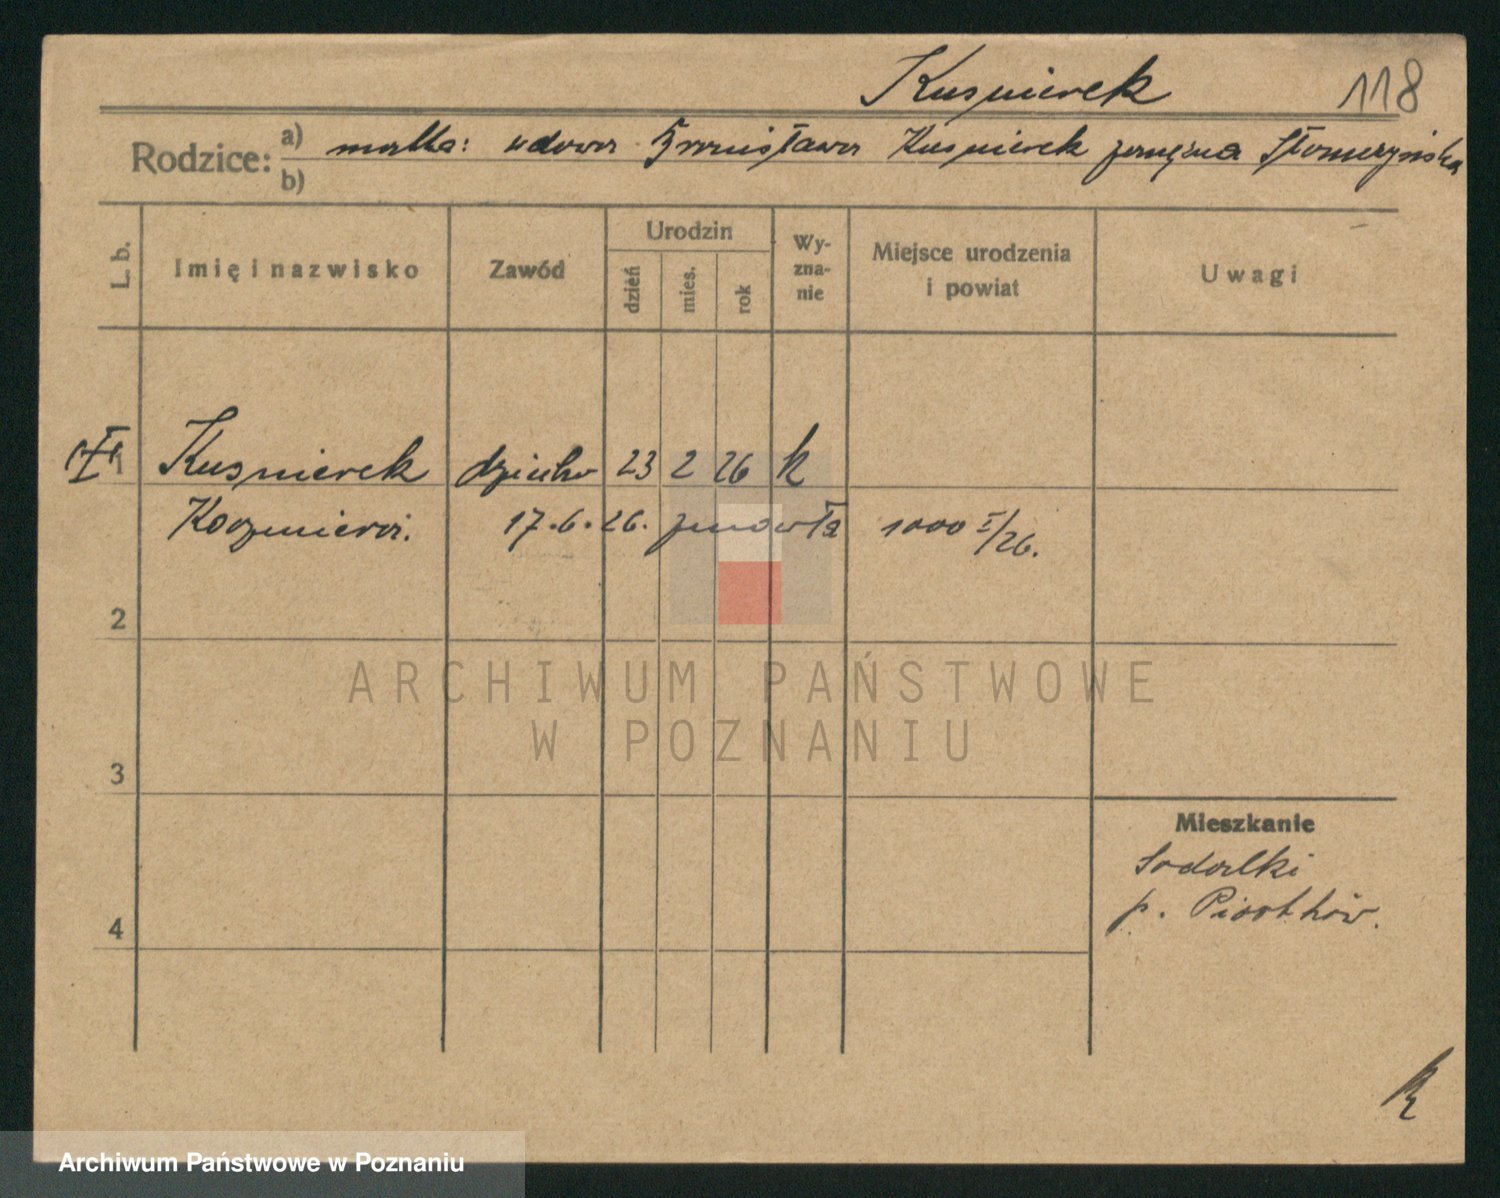 Kusnierek 118
Rodzice: a) matka: wdowa Bronisława Kusnierek zamężna Słomczyńska
b)
L. b. Imię i nazwisko Zawód Urodzin dzień mies. rok Wy-zna-nie Miejsce urodzenia i powiat Uwagi
1 Kusnierek dziecko 23 2 26 k
Kazimiera. 17.6.26. zmarła 1000 I/26.
2
3
4
Mieszkanie
p.
ARCHIWUM PAŃSTWOWE
W POZNANIU
Archiwum Państwowe w Poznaniu